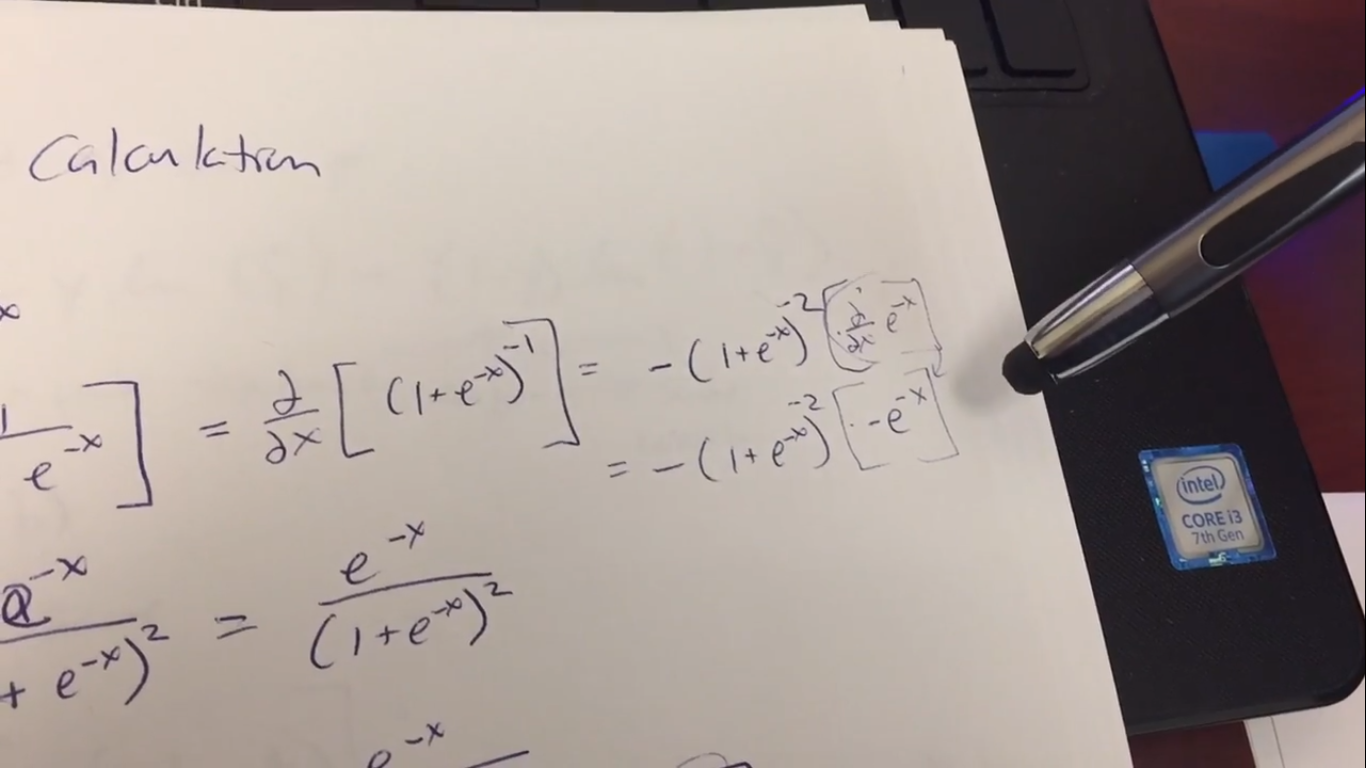 Calculation
x
1 / e^-x ] = ∂/∂x [ (1+e^-x)^-1 ] = -(1+e^-x)^-2 [ ∂/∂x e^-x ]
= -(1+e^-x)^-2 [ -e^-x ]
e^-x / + e^-x)^2 = e^-x / (1+e^-x)^2
e^-x
intel
CORE i3
7th Gen